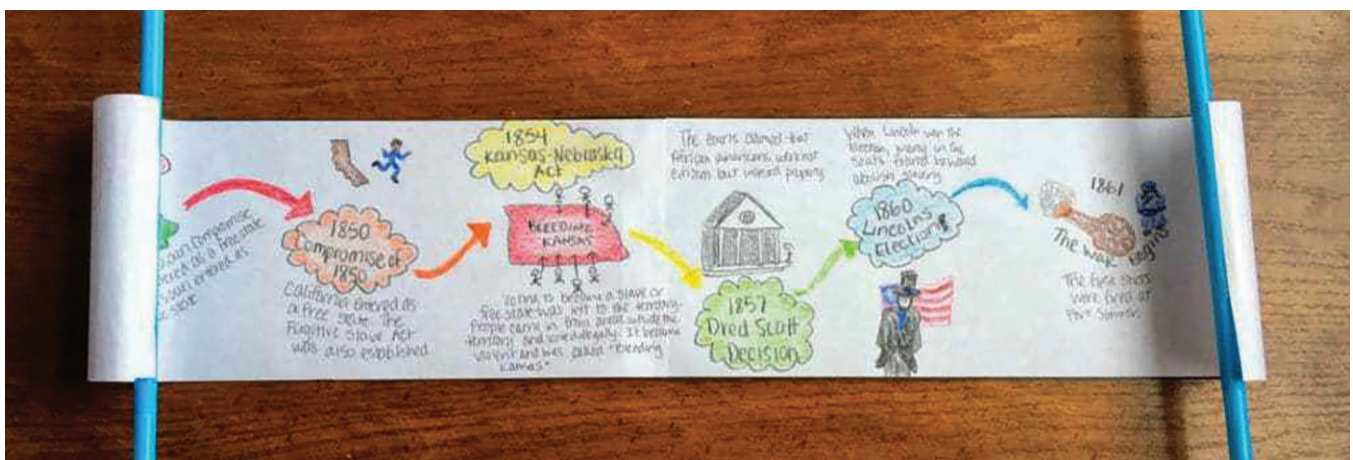 Compromise
as a free state
entered as
state
1850
Compromise of
1850
California entered as
a free state. The
Fugitive Slave Act
was also established
1854
Kansas-Nebraska
Act
BLEEDING
KANSAS
Voting to become a slave or
free state was left to the territory.
People came in from areas outside the
territory and voted illegally. It became
violent and was called "Bleeding
Kansas"
The courts claimed that
African Americans were not
citizens but instead property
1857
Dred Scott
Decision
When Lincoln won the
election, many in the
feared he would
abolish slavery
1860
Lincolns
Election
1861
The war begins
The first shots
were fired at
Fort